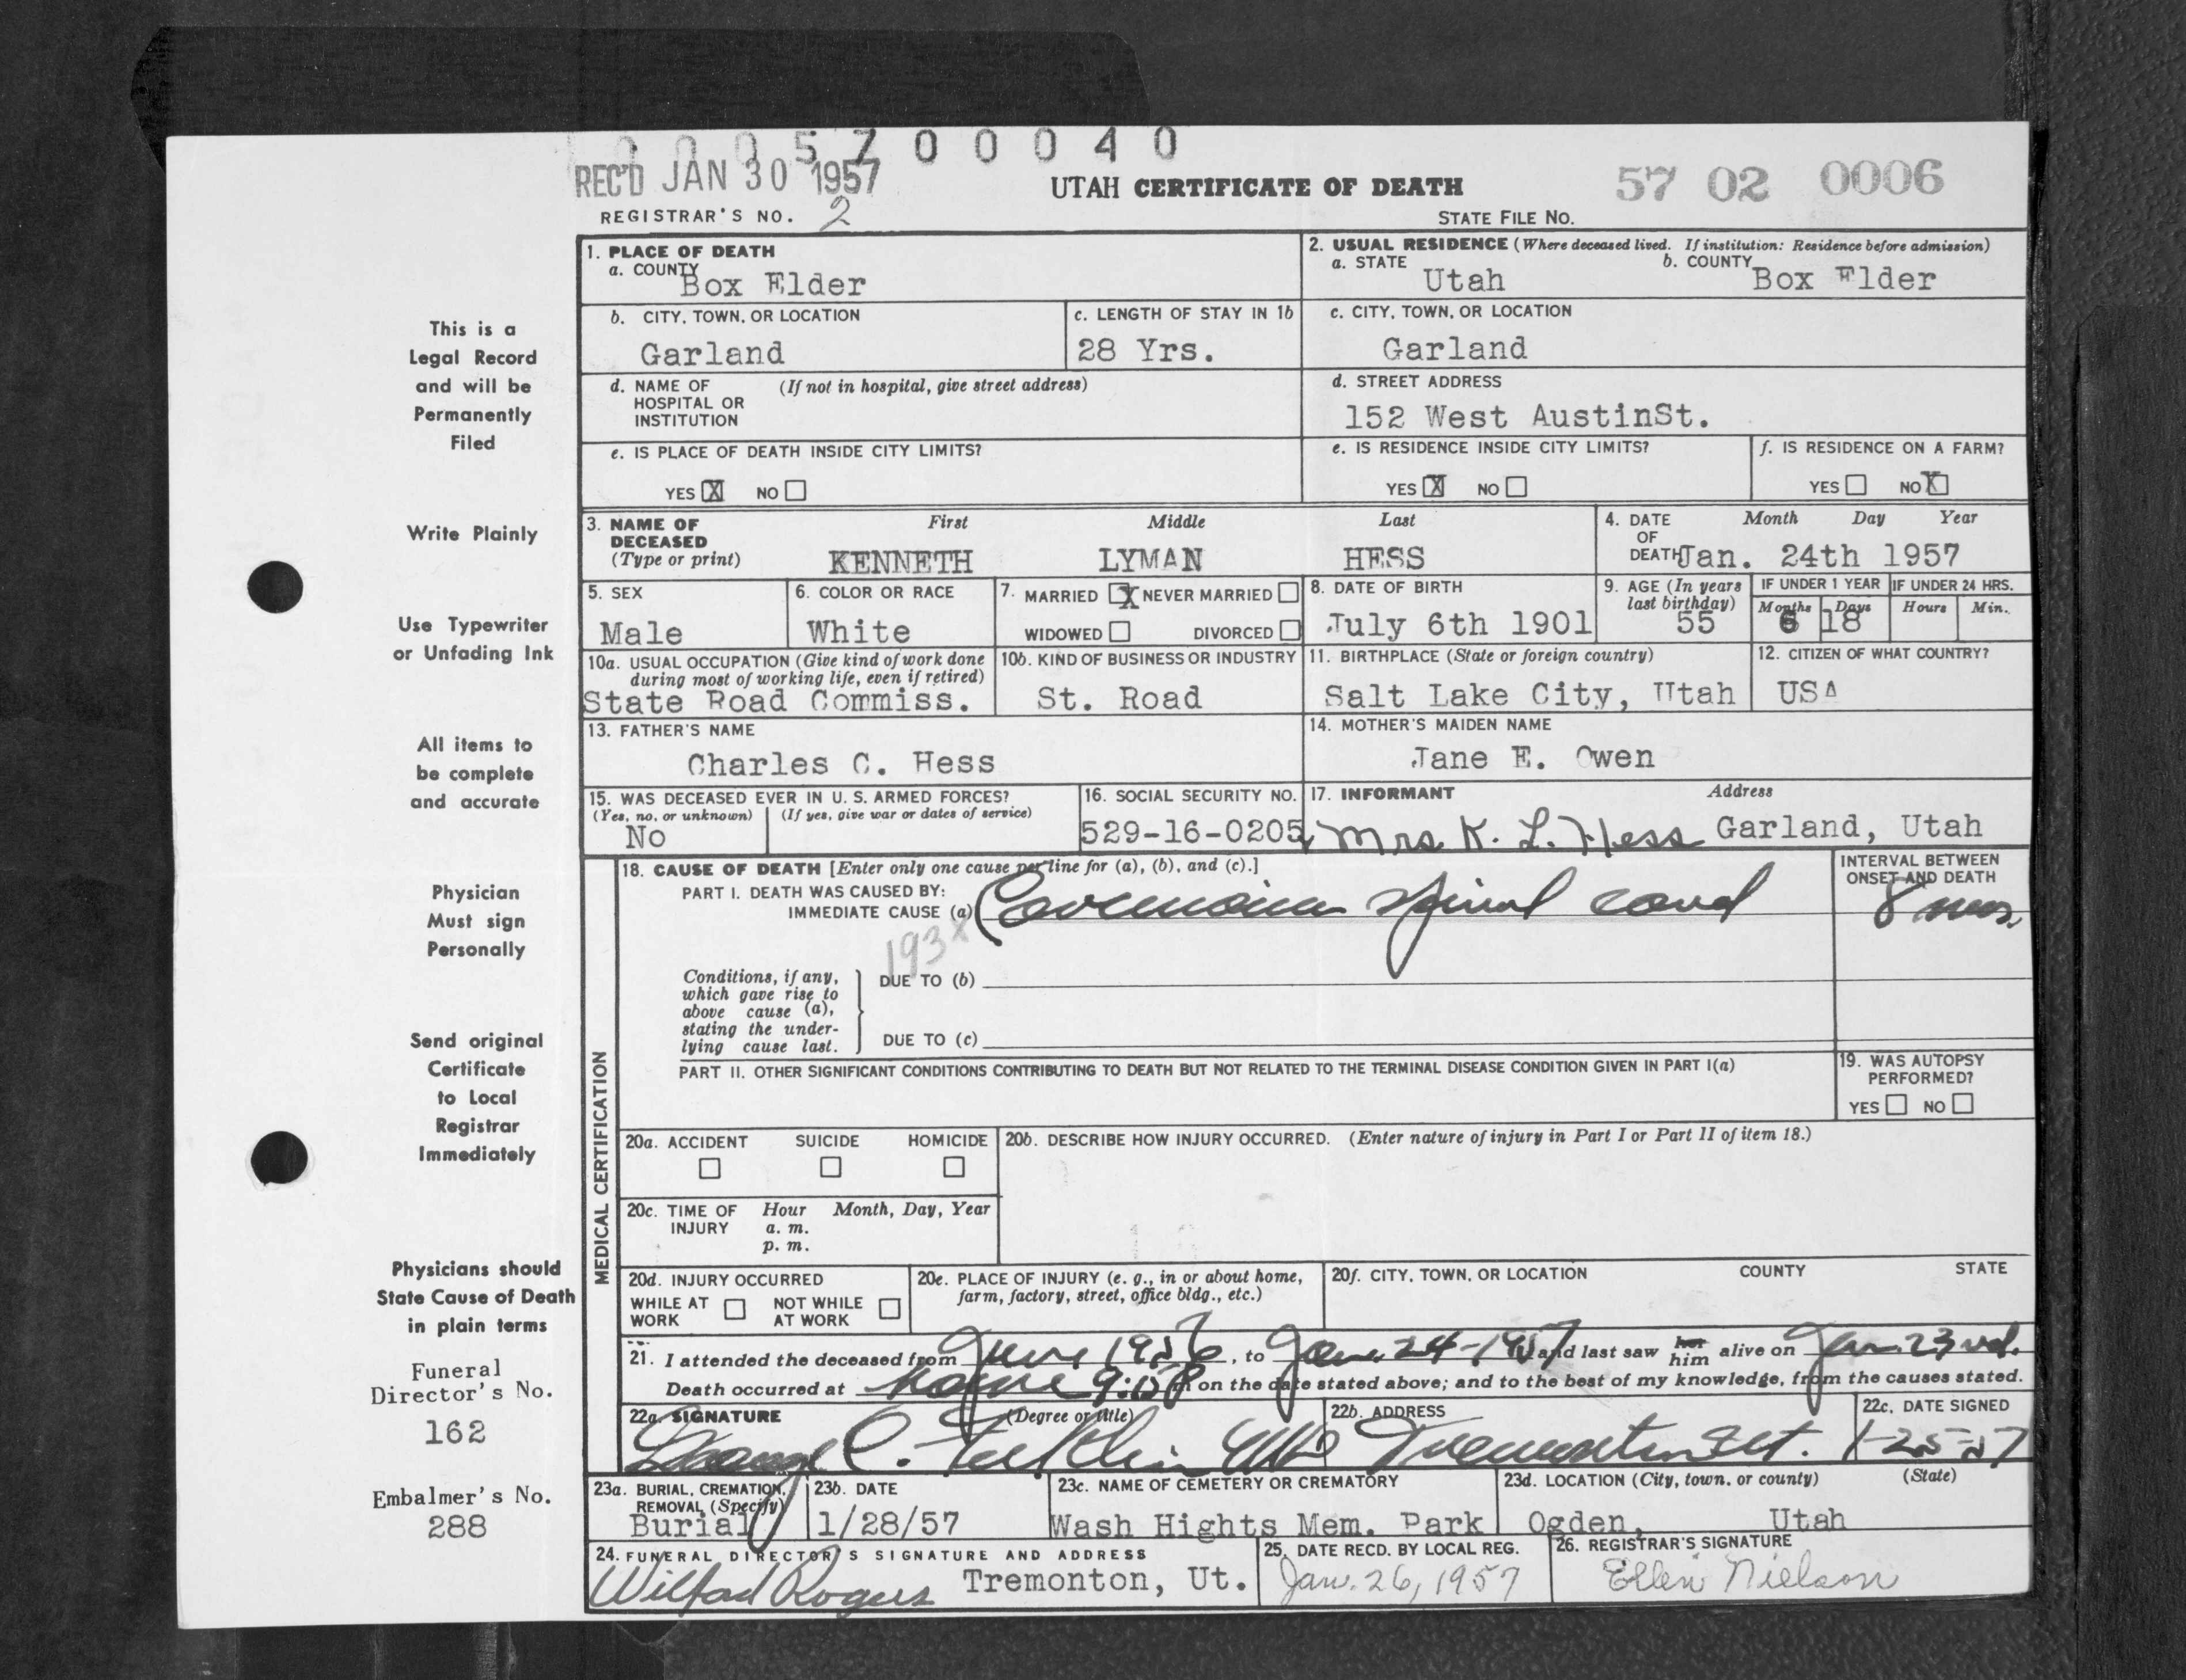 0 0 0 5 7 0 0 0 4 0
REC'D JAN 30 1957
UTAH CERTIFICATE OF DEATH
57 02 0006
REGISTRAR'S NO. 2
STATE FILE NO.
1. PLACE OF DEATH
a. COUNTY Box Elder
2. USUAL RESIDENCE (Where deceased lived. If institution: Residence before admission)
a. STATE Utah b. COUNTY Box Elder
b. CITY, TOWN, OR LOCATION Garland
c. LENGTH OF STAY IN 1b 28 Yrs.
c. CITY, TOWN, OR LOCATION Garland
d. NAME OF HOSPITAL OR INSTITUTION (If not in hospital, give street address)
d. STREET ADDRESS 152 West AustinSt.
e. IS PLACE OF DEATH INSIDE CITY LIMITS?
YES X NO
e. IS RESIDENCE INSIDE CITY LIMITS?
YES X NO
f. IS RESIDENCE ON A FARM?
YES NO X
3. NAME OF DECEASED (Type or print)
First Middle Last
KENNETH LYMAN HESS
4. DATE OF DEATH Month Day Year
Jan. 24th 1957
5. SEX Male
6. COLOR OR RACE White
7. MARRIED X NEVER MARRIED
WIDOWED DIVORCED
8. DATE OF BIRTH July 6th 1901
9. AGE (In years last birthday) 55
IF UNDER 1 YEAR Months 6 Days 18
IF UNDER 24 HRS. Hours Min.
10a. USUAL OCCUPATION (Give kind of work done during most of working life, even if retired)
State Road Commiss.
10b. KIND OF BUSINESS OR INDUSTRY
St. Road
11. BIRTHPLACE (State or foreign country)
Salt Lake City, Utah
12. CITIZEN OF WHAT COUNTRY?
USA
13. FATHER'S NAME
Charles C. Hess
14. MOTHER'S MAIDEN NAME
Jane E. Owen
15. WAS DECEASED EVER IN U. S. ARMED FORCES?
(Yes, no, or unknown) (If yes, give war or dates of service)
No
16. SOCIAL SECURITY NO.
529-16-0205
17. INFORMANT Address
Mrs. K. L. Hess Garland, Utah
MEDICAL CERTIFICATION
18. CAUSE OF DEATH [Enter only one cause per line for (a), (b), and (c).]
PART I. DEATH WAS CAUSED BY:
IMMEDIATE CAUSE (a) spinal cord
INTERVAL BETWEEN ONSET AND DEATH
8 mos.
193x
Conditions, if any, which gave rise to above cause (a), stating the underlying cause last.
DUE TO (b)
DUE TO (c)
PART II. OTHER SIGNIFICANT CONDITIONS CONTRIBUTING TO DEATH BUT NOT RELATED TO THE TERMINAL DISEASE CONDITION GIVEN IN PART I(a)
19. WAS AUTOPSY PERFORMED?
YES NO
20a. ACCIDENT SUICIDE HOMICIDE
20b. DESCRIBE HOW INJURY OCCURRED. (Enter nature of injury in Part I or Part II of item 18.)
20c. TIME OF INJURY Hour Month, Day, Year
a. m.
p. m.
20d. INJURY OCCURRED
WHILE AT WORK NOT WHILE AT WORK
20e. PLACE OF INJURY (e. g., in or about home, farm, factory, street, office bldg., etc.)
20f. CITY, TOWN, OR LOCATION COUNTY STATE
21. I attended the deceased from June 1956, to Jan. 24-1957 and last saw her him alive on Jan. 23rd.
Death occurred at home 9:15 P m on the date stated above; and to the best of my knowledge, from the causes stated.
22a. SIGNATURE (Degree or title)
C. MD
22b. ADDRESS
Tremonton Ut.
22c. DATE SIGNED
1-25-57
23a. BURIAL, CREMATION, REMOVAL (Specify)
Burial
23b. DATE
1/28/57
23c. NAME OF CEMETERY OR CREMATORY
Wash Hights Mem. Park
23d. LOCATION (City, town, or county) (State)
Ogden, Utah
24. FUNERAL DIRECTOR'S SIGNATURE AND ADDRESS
Wilfad Rogers Tremonton, Ut.
25. DATE RECD. BY LOCAL REG.
Jan. 26, 1957
26. REGISTRAR'S SIGNATURE
Ellen Nielson
This is a
Legal Record
and will be
Permanently
Filed
Write Plainly
Use Typewriter
or Unfading Ink
All items to
be complete
and accurate
Physician
Must sign
Personally
Send original
Certificate
to Local
Registrar
Immediately
Physicians should
State Cause of Death
in plain terms
Funeral
Director's No.
162
Embalmer's No.
288